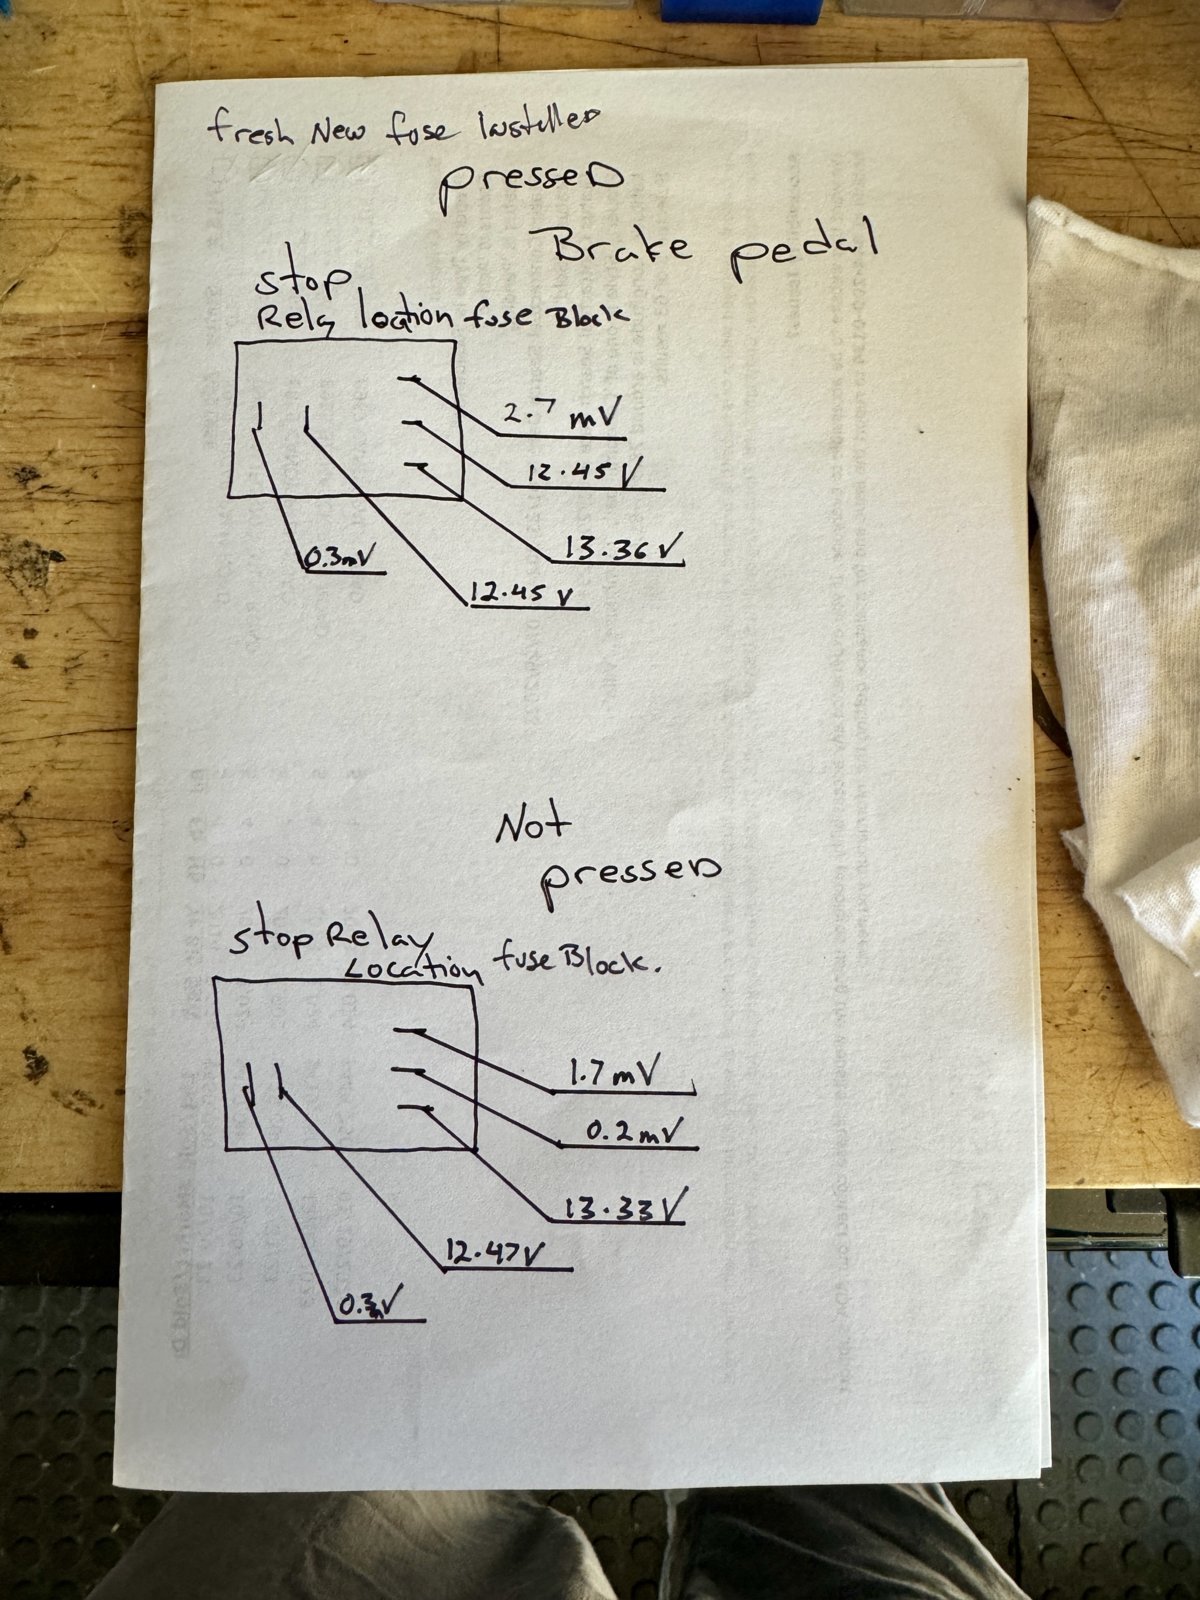 fresh New fuse Installed
pressed
Brake pedal
stop
Rely location fuse Block
2.7 mV
12.45 V
13.36 V
0.3mV
12.45 V
Not
pressed
stop Relay
Location fuse Block.
1.7 mV
0.2 mV
13.33 V
12.47V